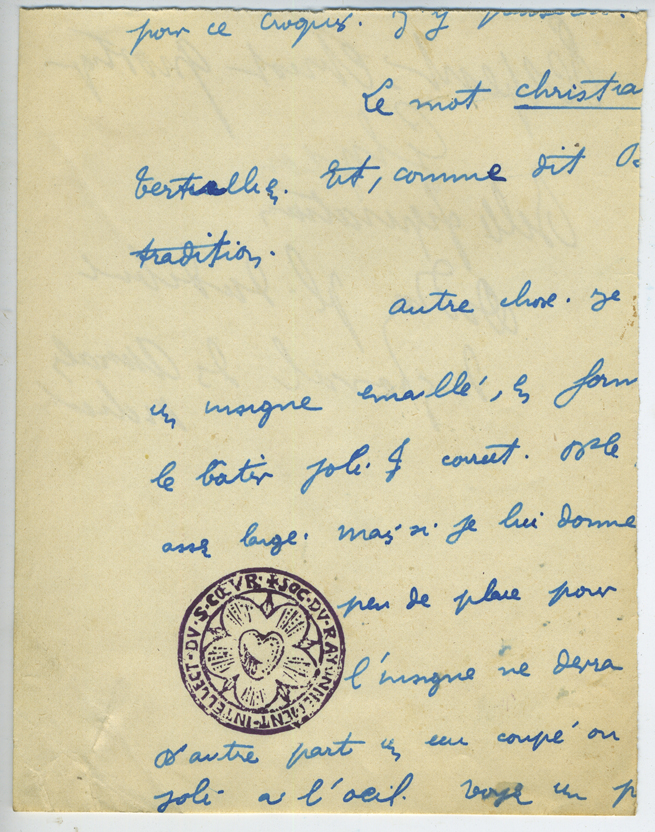 pour ce croquis. J'y
Le mot christia
tertielle. Et, comme dit
tradition.
autre chose. Je
un insigne emaillé, en form
le bâtir joli & correct.
assez large. mais si je lui donne
peu de place pour
l'insigne ne devra
D'autre part un écu coupé ou
joli a l'oeil. Voyez un p
✶ SOC·DV·RAYONNEMENT·INTELLECT·DV·S·CŒVR·